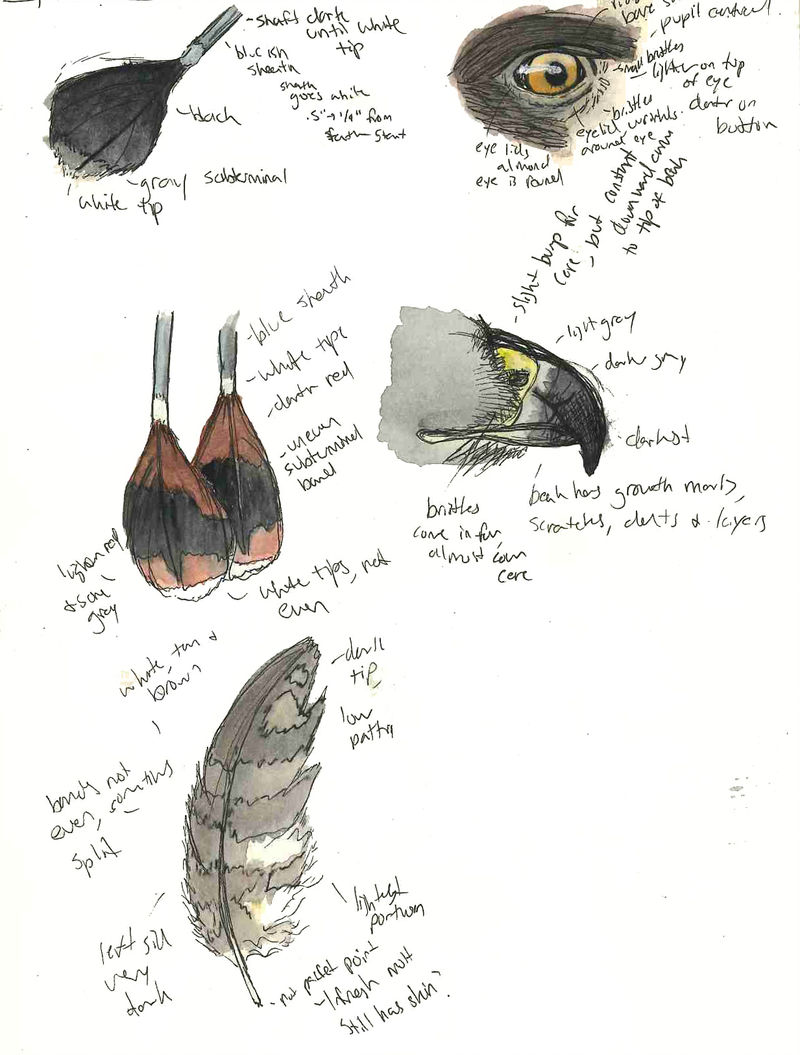 - shaft dark
until white
tip
blueish
sheath
sheath
goes white
.5" - 1/4" from
feather start
- black
- gray subterminal
white tip
bare
pupil contract.
small bristles
lighter on top
of eye
darker on
button
- bristles
eyelid wrinkles
around eye
eye lids
almond
eye is round
- slight bump for
cere, but constant
downward curve
to tip of beak
- blue sheath
- white tips
- dark red
- uneven
subterminal
band
- light gray
- dark gray
darkest
beak has growth marks,
scratches, dents & layers
bristles
come in fan
almost over
cere
lighter red
& some
gray
white tips, not
even
white, tan &
brown
- dark
tip
low
pattern
bands not
even, sometimes
split
lightest
portion
left still
very
dark
- not perfect point
- fresh molt
still has skin?